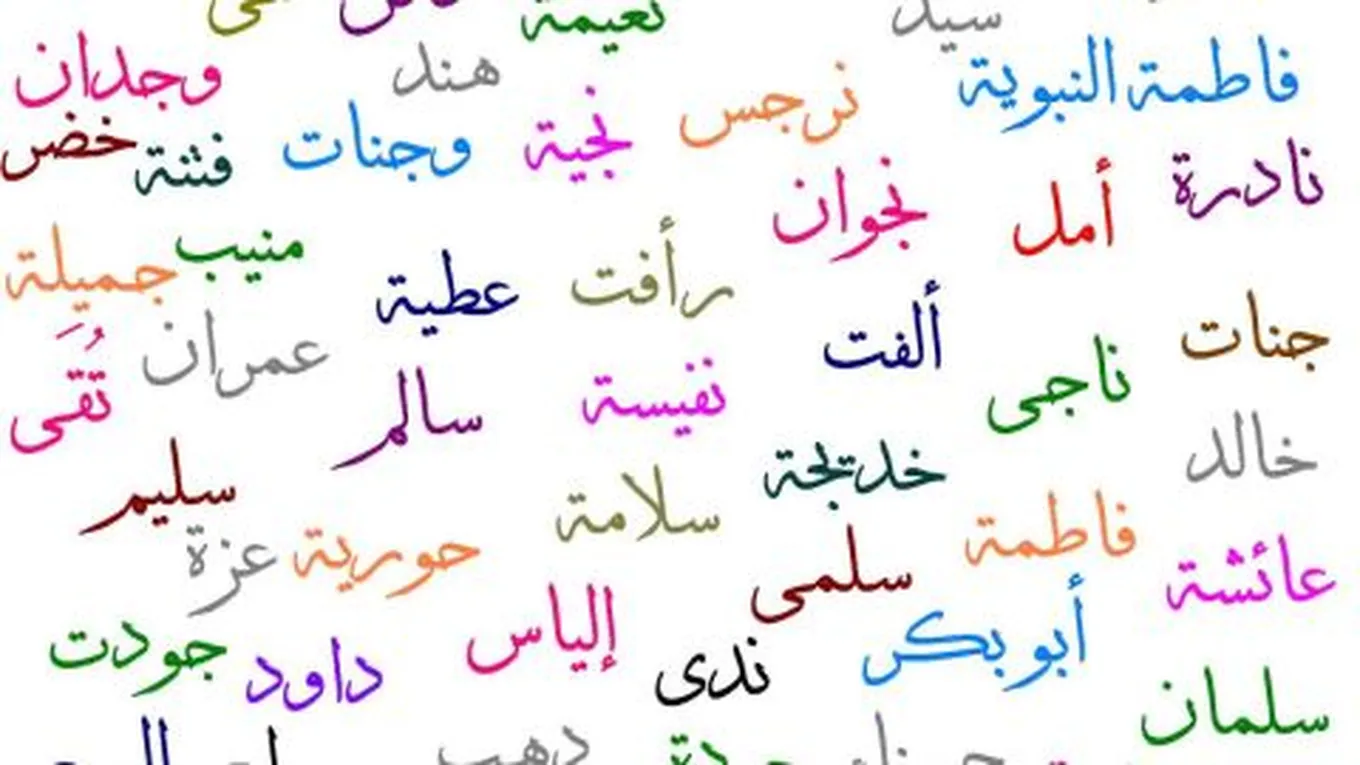 نعيمة سيد
فاطمة النبوية هند وجدان
نرجس نجية وجنات فتنة خضر
نادرة أمل نجوان
رأفت عطية منيب جميلة
جنات ألفت عمران
ناجى نفيسة سالم تُقَى
خالد خديجة سليم
فاطمة سلامة حورية عزة
عائشة سلمى
أبو بكر ندى إلياس داود جودت
سلمان